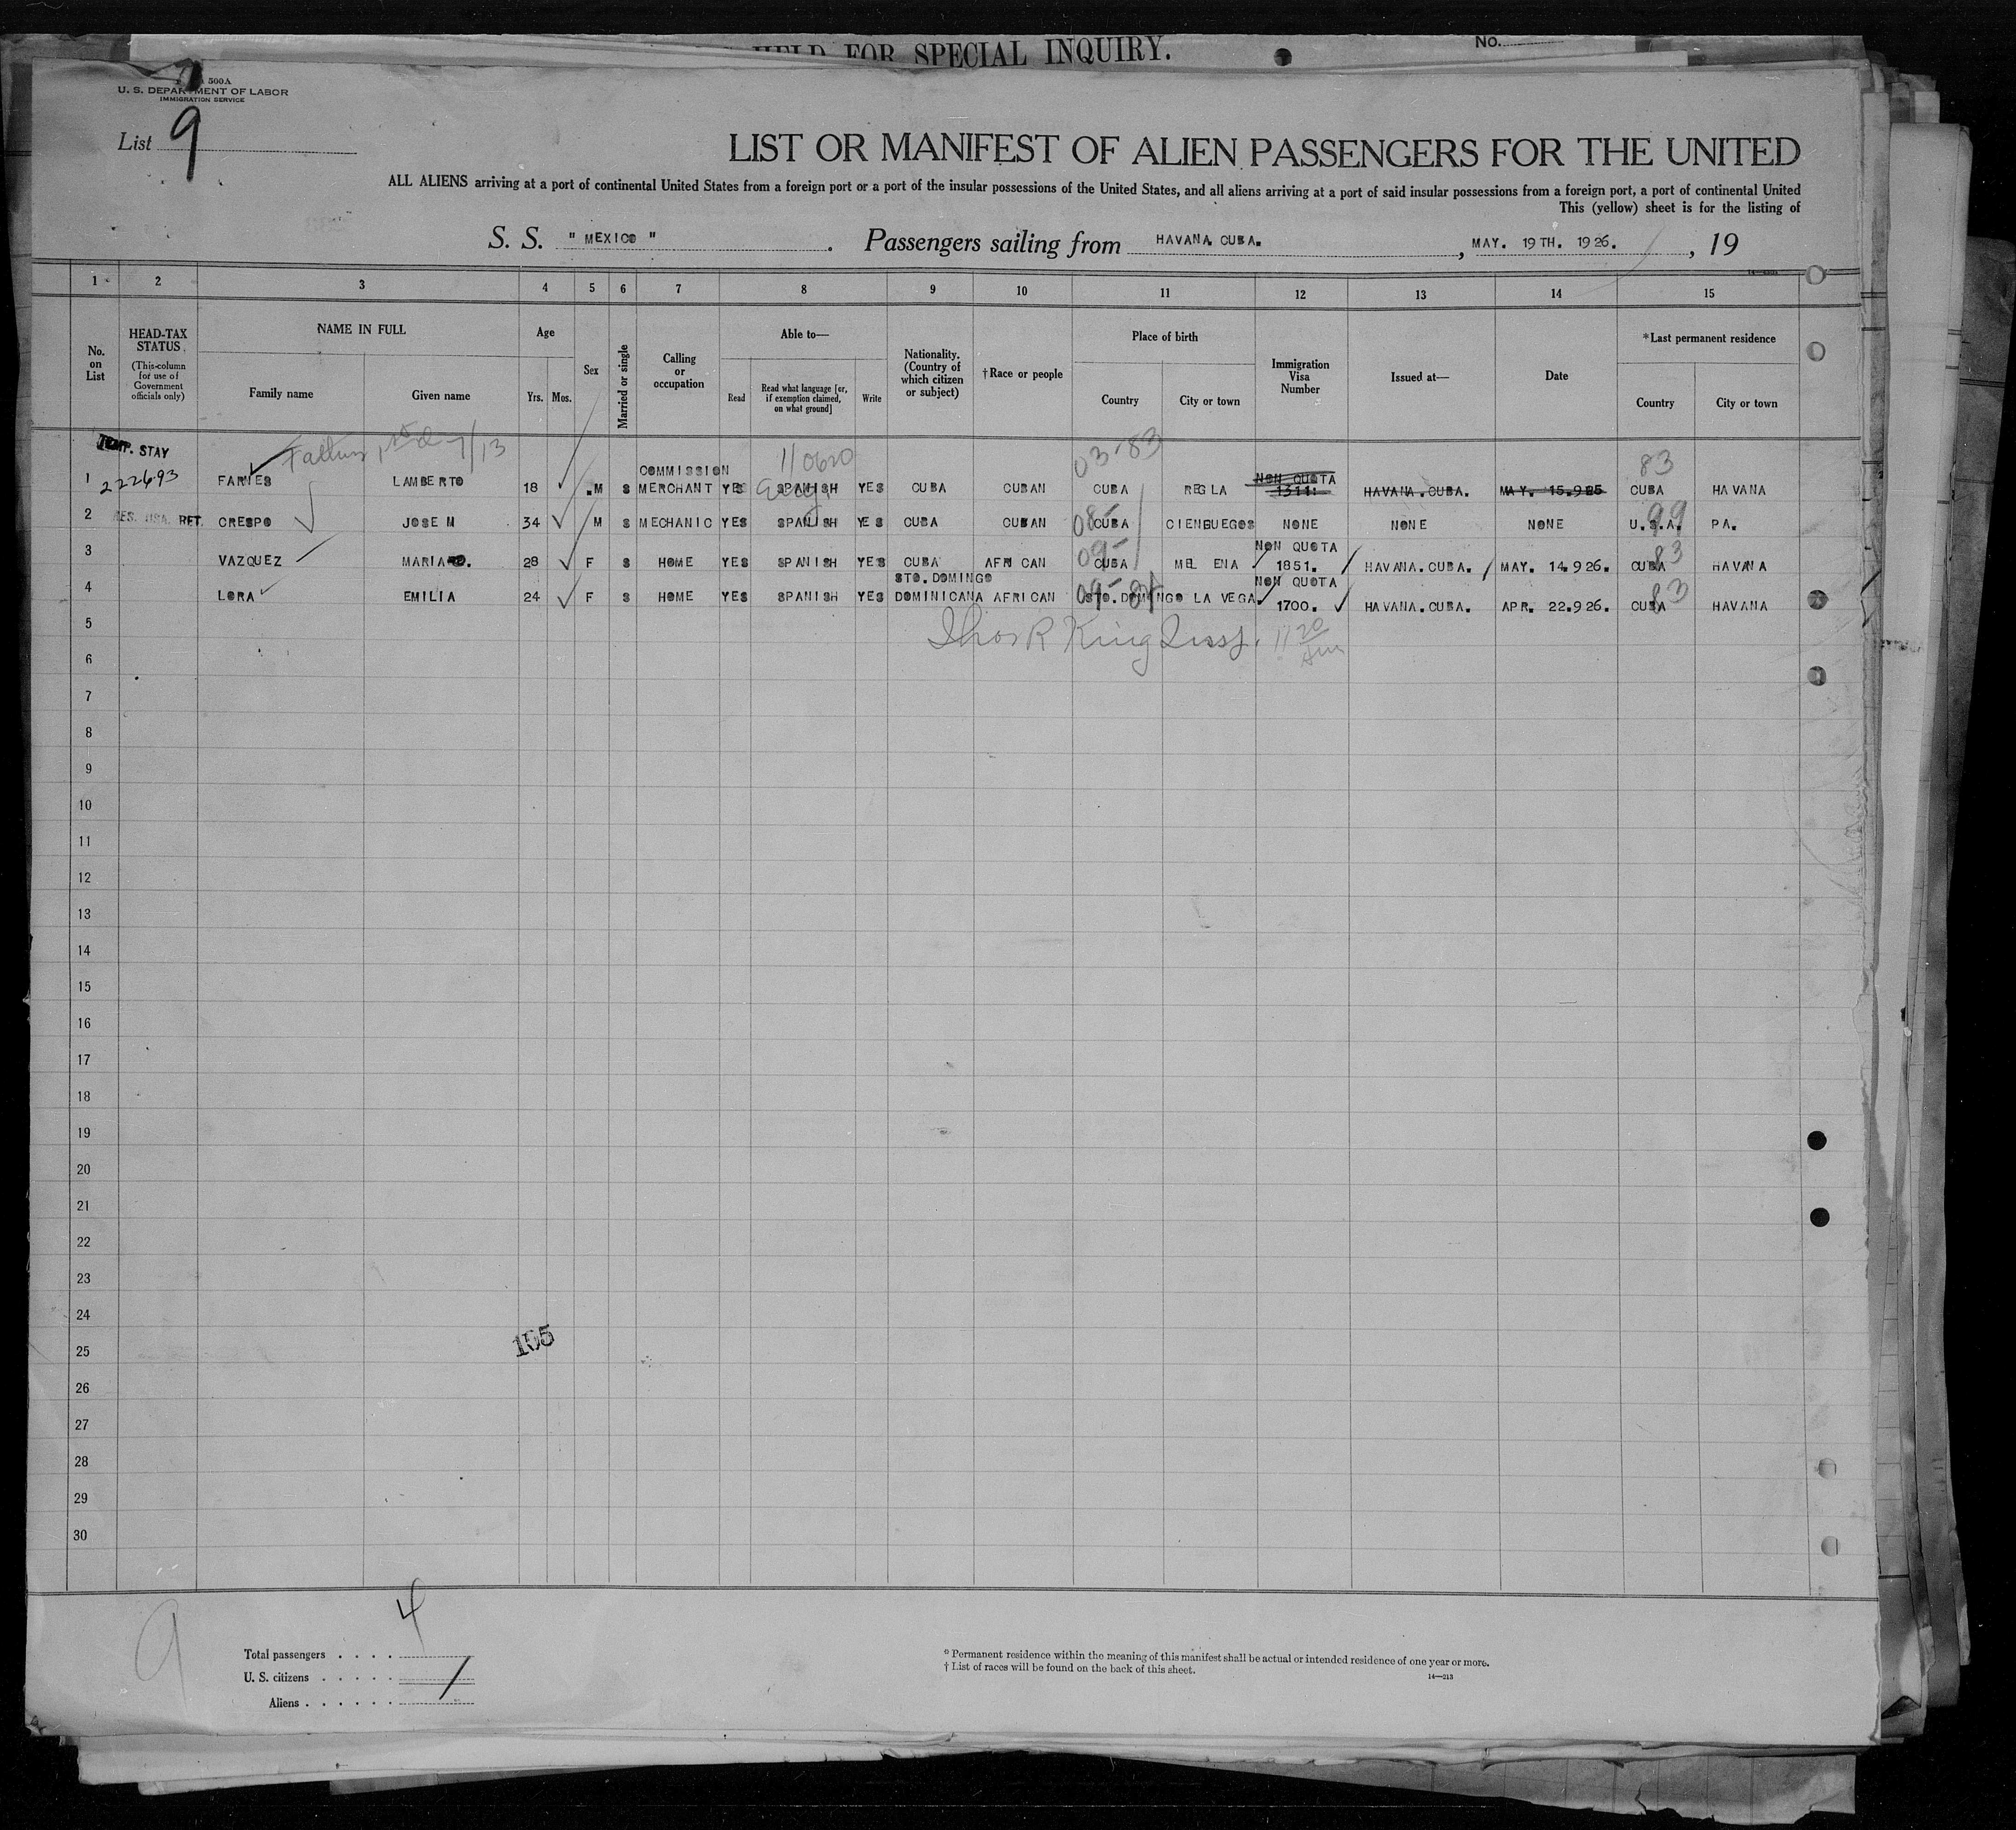 HELD FOR SPECIAL INQUIRY.
No.
500A
U. S. DEPARTMENT OF LABOR
IMMIGRATION SERVICE
List 9
LIST OR MANIFEST OF ALIEN PASSENGERS FOR THE UNITED
ALL ALIENS arriving at a port of continental United States from a foreign port or a port of the insular possessions of the United States, and all aliens arriving at a port of said insular possessions from a foreign port, a port of continental United
This (yellow) sheet is for the listing of
S. S. " MEXICO " . Passengers sailing from HAVANA. CUBA. , MAY. 19TH. 1926. , 19
1 2 3 4 5 6 7 8 9 10 11 12 13 14 15
No. on List
HEAD-TAX STATUS
(This column for use of Government officials only)
NAME IN FULL
Family name Given name
Age
Yrs. Mos.
Sex
Married or single
Calling or occupation
Able to—
Read
Read what language [or, if exemption claimed, on what ground]
Write
Nationality. (Country of which citizen or subject)
†Race or people
Place of birth
Country City or town
Immigration Visa Number
Issued at—
Date
*Last permanent residence
Country City or town
TEMP. STAY
7/13
110620
03-83
83
COMMISSION
NON QUOTA
1 222693 FARNES LAMBERTO 18 M S MERCHANT YES SPANISH YES CUBA CUBAN CUBA REGLA HAVANA.CUBA. MAY. 15.925 CUBA HAVANA
2 RES. USA. RET. CRESPO JOSE M 34 M S MECHANIC YES SPANISH YES CUBA CUBAN CUBA CIENGUEGOS NONE NONE NONE U.S.A. PA.
99
NON QUOTA
3 VAZQUEZ MARIA 28 F S HOME YES SPANISH YES CUBA AFRICAN CUBA MELENA 1851. HAVANA.CUBA. MAY. 14.926. CUBA HAVANA
09
83
STO.DOMINGO
NON QUOTA
4 LORA EMILIA 24 F S HOME YES SPANISH YES DOMINICANA AFRICAN STO.DOMINGO LA VEGA. 1700. HAVANA.CUBA. APR. 22.926. CUBA HAVANA
83
Thos R King Insp. 11 20 Am
5
6
7
8
9
10
11
12
13
14
15
16
17
18
19
20
21
22
23
24
25
26
27
28
29
30
195
9
4
Total passengers . . . .
U. S. citizens . . . . .
Aliens . . . . . .
* Permanent residence within the meaning of this manifest shall be actual or intended residence of one year or more.
† List of races will be found on the back of this sheet.
14—213